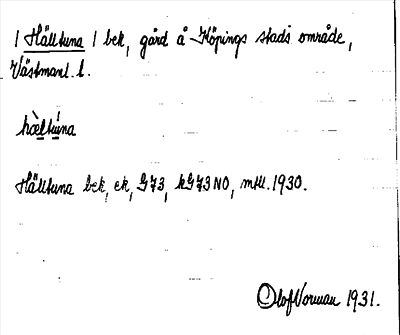 / Hälltuna / bek, gård å Köpings stads område,
Västmanl. l.
hæ̀ltúna
Hälltuna bek, ek, G73, kG73NO, mtl. 1930.
Olof Norman 1931.